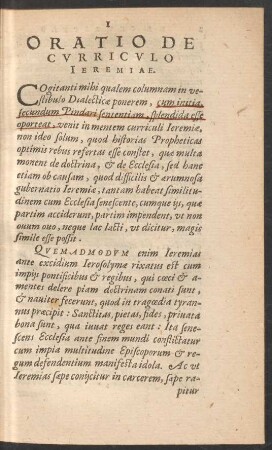 I
ORATIO DE
CVRRICVLO
IEREMIAE.
COgitanti mihi qualem columnam in ve-
stibulo Dialecticæ ponerem, cum initia,
secundum Pindari sententiam, splendida esse
oporteat, venit in mentem curriculi Ieremiæ,
non ideo solum, quod historias Propheticas
optimis rebus refertas esse constet, quæ multa
monent de doctrina, & de Ecclesia, sed hanc
etiam ob causam, quod difficilis & ærumnosa
gubernatio Ieremiæ, tantam habeat similitu-
dinem cum Ecclesiæ senescente, cumque ijs, quæ
partim acciderunt, partim impendent, vt non
ouum ouo, neque lac lacti, vt dicitur, magis
simile esse possit.
QVEMADMODVM enim Ieremias
ante excidium Ierosolymæ rixatus est cum
impijs pontificibus & regibus, qui cœci & a-
mentes delere piam doctrinam conati sunt,
& nauiter fecerunt, quod in tragœdia tyran-
nus præcipit: Sanctitas, pietas, fides, priuata
bona sunt, qua iuuat reges eant: Ita sene-
scens Ecclesia ante finem mundi conflictatur
cum impia multitudine Episcoporum & re-
gum defendentium manifesta idola. Ac vt
Ieremias sæpe conijcitur in carcerem, sæpe ra-
pieur